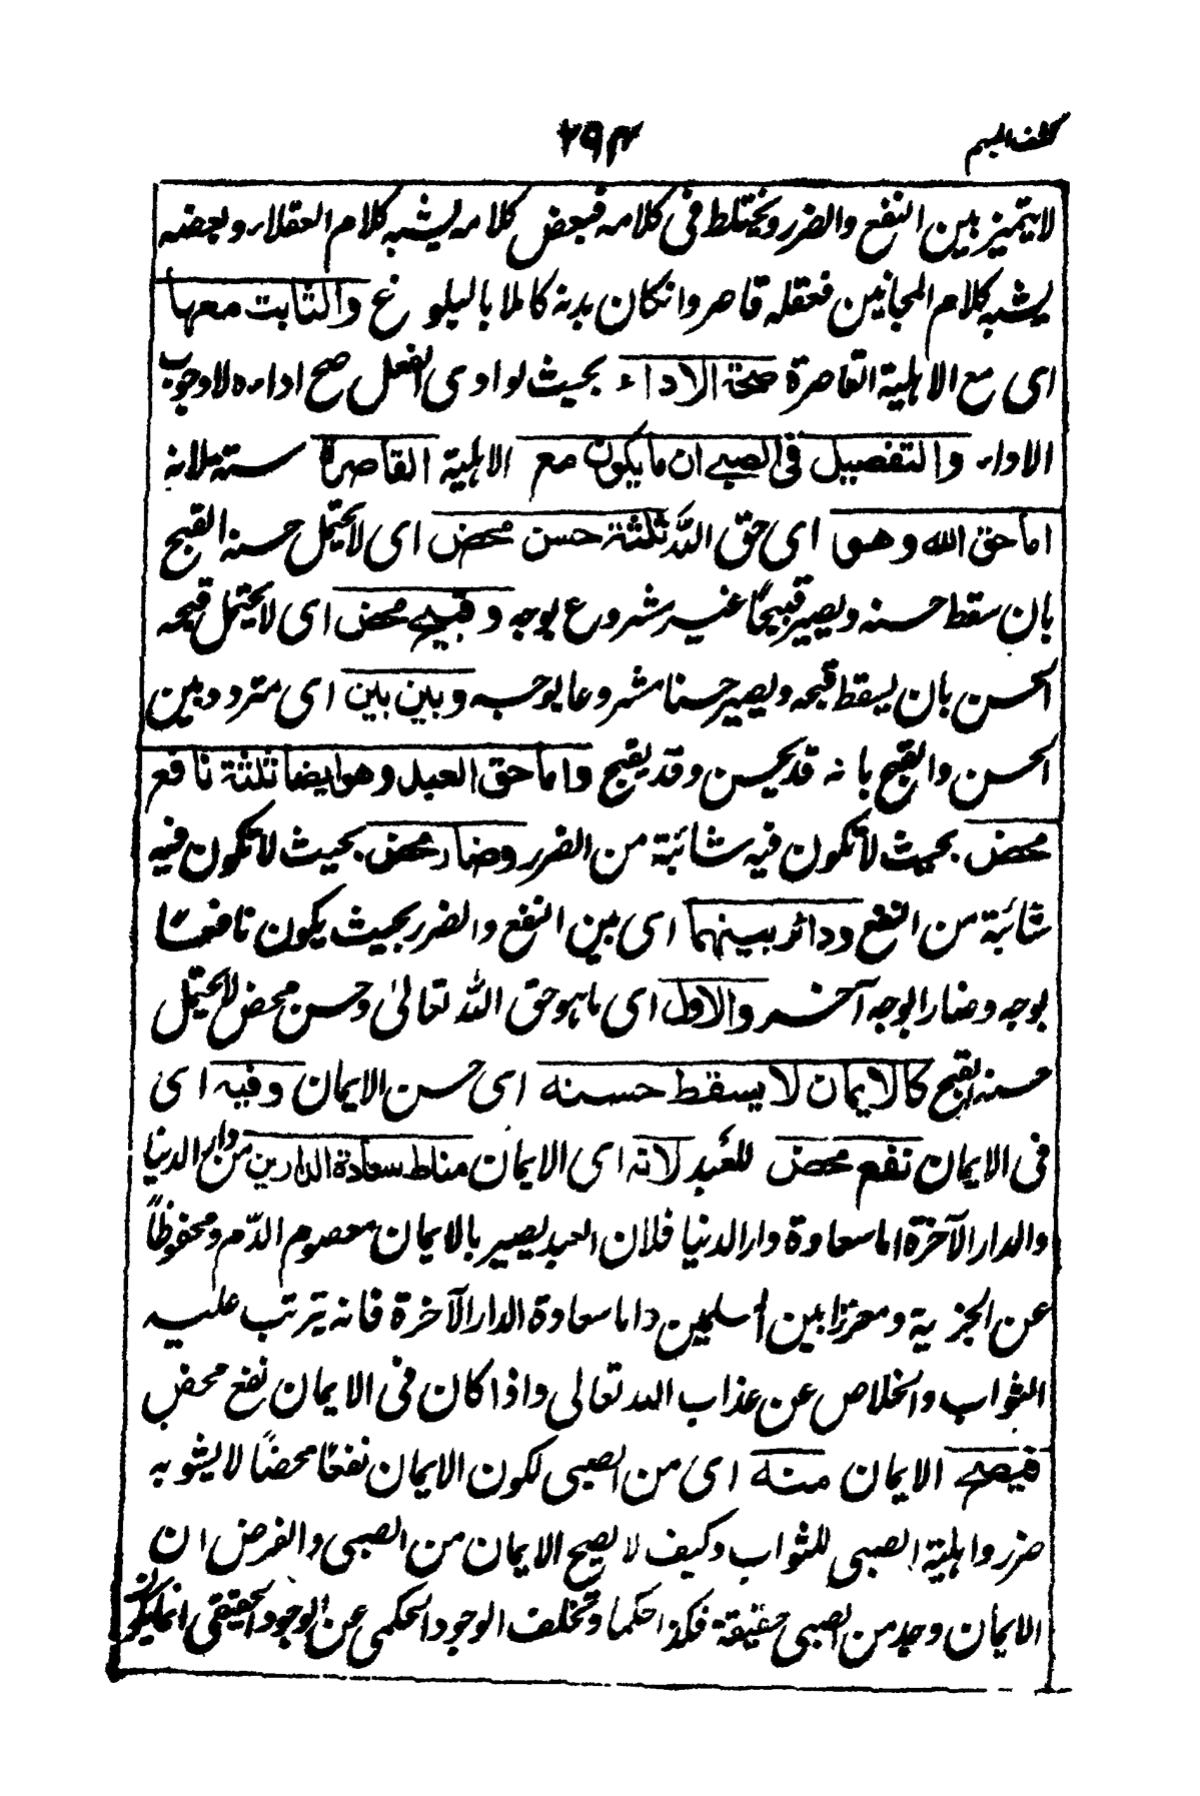 كشف المبهم
۲۹۴
لا يتميز بين النفع والضرر ويختلط فى كلامه فبعض كلامه يشبه كلام العقلاء وبعضه
يشبه كلام المجانين فعقله قاصر وانكان بدنه كاملا بالبلوغ والثابت معها
اى مع الاهلية القاصرة صحة الاداء بحيث لو ادى الفعل صح اداءه لا وجوب
الاداء والتفصيل فى الصبي ان ما يكون مع الاهلية القاصرة ستة لانه
اما حق الله وهو اى حق الله ثلثة حسن محض اى لا يحتمل حسنه القبح
بان سقط حسنه ويصير قبيحًا غير مشروع بوجه وقبيح محض اى لا يحتمل قبحه
الحسن بان يسقط قبحه ويصير حسنا مشروعا بوجه وبين بين اى متردد بين
الحسن والقبح بانه قد يحسن وقد يقبح واما حق العبد وهو ايضا ثلثة نافع
محض بحيث لا تكون فيه شائبة من الضرر وضار محض بحيث لا تكون فيه
شائبة من النفع ودائر بينهما اى بين النفع والضرر بحيث يكون نافعًا
بوجه وضارا بوجه آخر والاول اى ما هو حق الله تعالىٰ وحسن محض لا يحتمل
حسنه القبح كالايمان لا يسقط حسنه اى حسن الايمان وفيه اى
فى الايمان نفع محض للعبد لانه اى الايمان مناط سعادة الدارين من دار الدنيا
والدار الآخرة اما سعادة دار الدنيا فلان العبد يصير بالايمان معصوم الدّم ومحفوظاً
عن الجزية ومعززا بين المسلمين واما سعادة الدار الآخرة فانه يترتب عليه
الثواب والخلاص عن عذاب الله تعالى واذا كان فى الايمان نفع محض
فيصح الايمان منه اى من الصبى لكون الايمان نفعًا محضًا لا يشوبه
ضرر واهلية الصبى للثواب وكيف لا يصح الايمان من الصبى والفرض ان
الايمان وجد من الصبى حقيقة فكذا حكما وتخلف الوجود الحكمى عن الوجود الحقيقى انما يكون